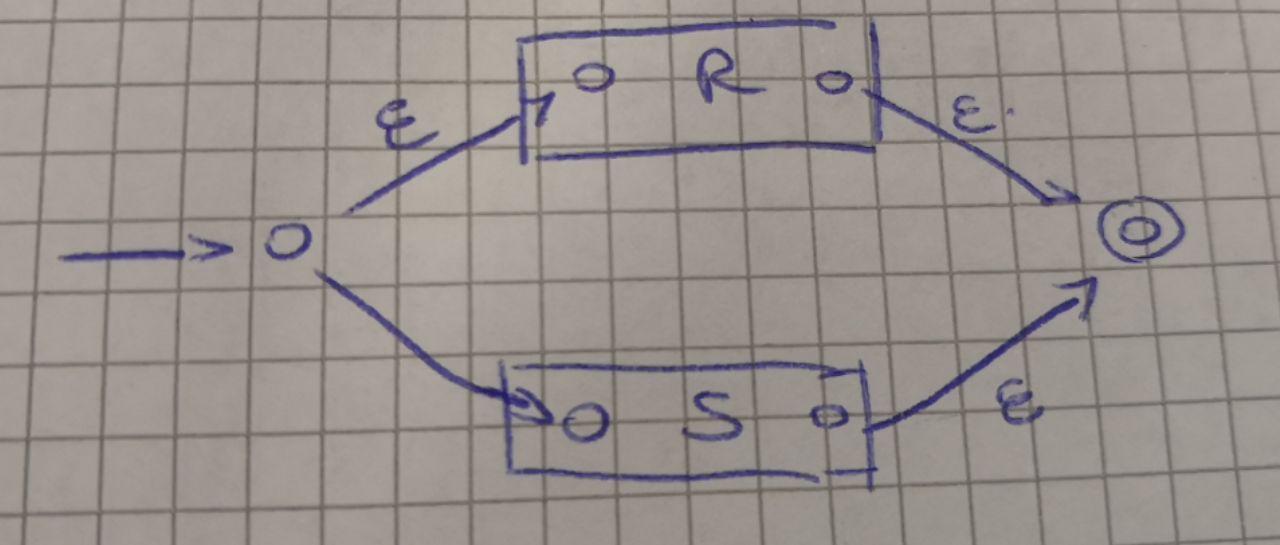 ε R ε
S ε